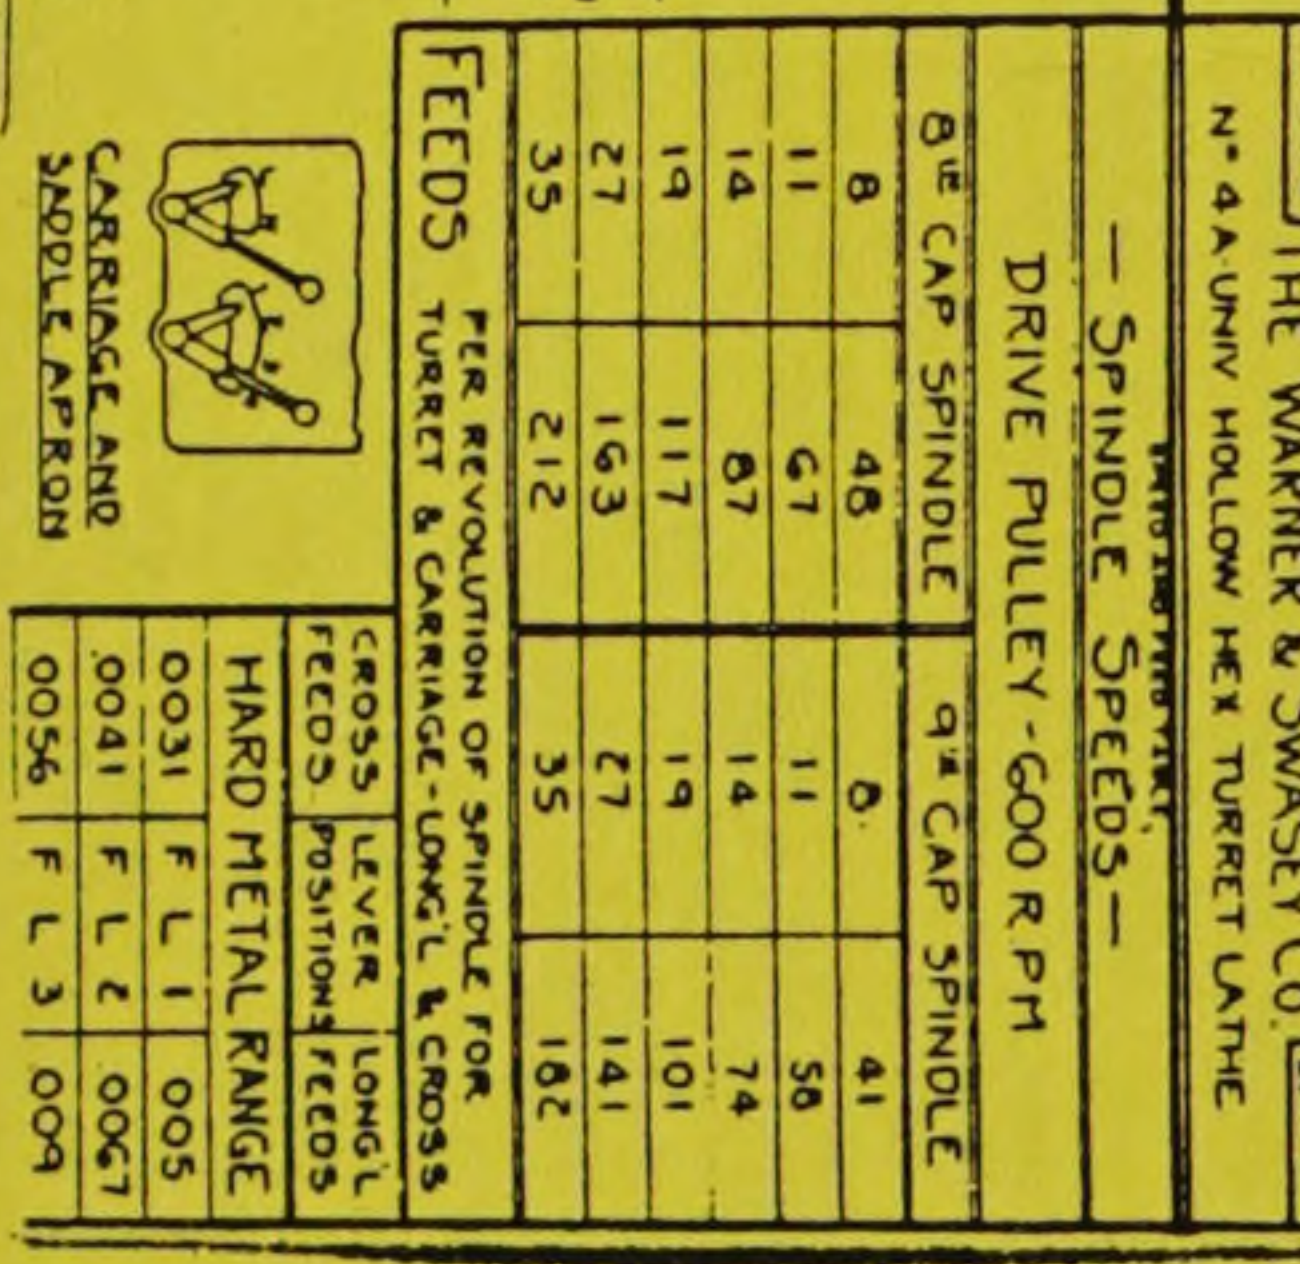 THE WARNER & SWASEY CO.
Nº 4A-UNIV HOLLOW HEX TURRET LATHE
— SPINDLE SPEEDS —
DRIVE PULLEY - 600 R.P.M
8 1/2 CAP SPINDLE 9 1/4 CAP SPINDLE
8 48 8 41
11 67 11 58
14 87 14 74
19 117 19 101
27 163 27 141
35 212 35 182
FEEDS PER REVOLUTION OF SPINDLE FOR
TURRET & CARRIAGE - LONG'L & CROSS
CROSS FEEDS LEVER POSITIONS LONG'L FEEDS
HARD METAL RANGE
0031 F L 1 005
.0041 F L 2 .0067
0056 F L 3 009
CARRIAGE AND
SADDLE APRON